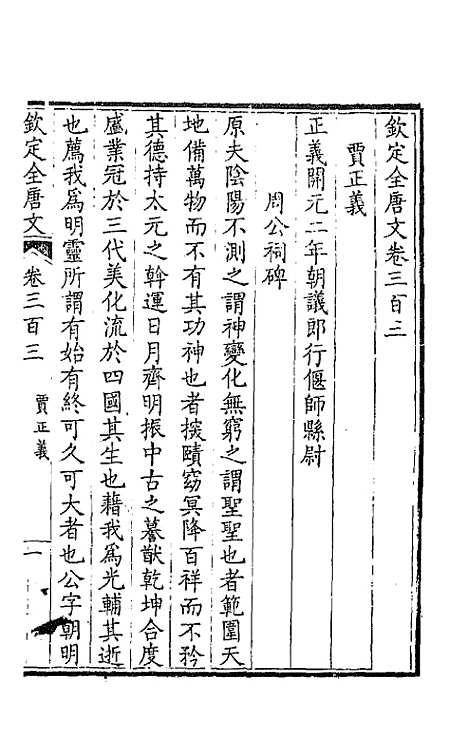 欽定全唐文卷三百三
賈正義
正義開元二年朝議郎行偃師縣尉
周公祠碑
原夫陰陽不測之謂神變化無窮之謂聖聖也者範圍天
地備萬物而不有其功神也者探賾窈冥降百祥而不矜
其德持太元之斡運日月齊明振中古之謩猷乾坤合度
盛業冠於三代美化流於四國其生也藉我為光輔其逝
也薦我為明靈所謂有始有終可久可大者也公字朝明
欽定全唐文
卷三百三
賈正義
一